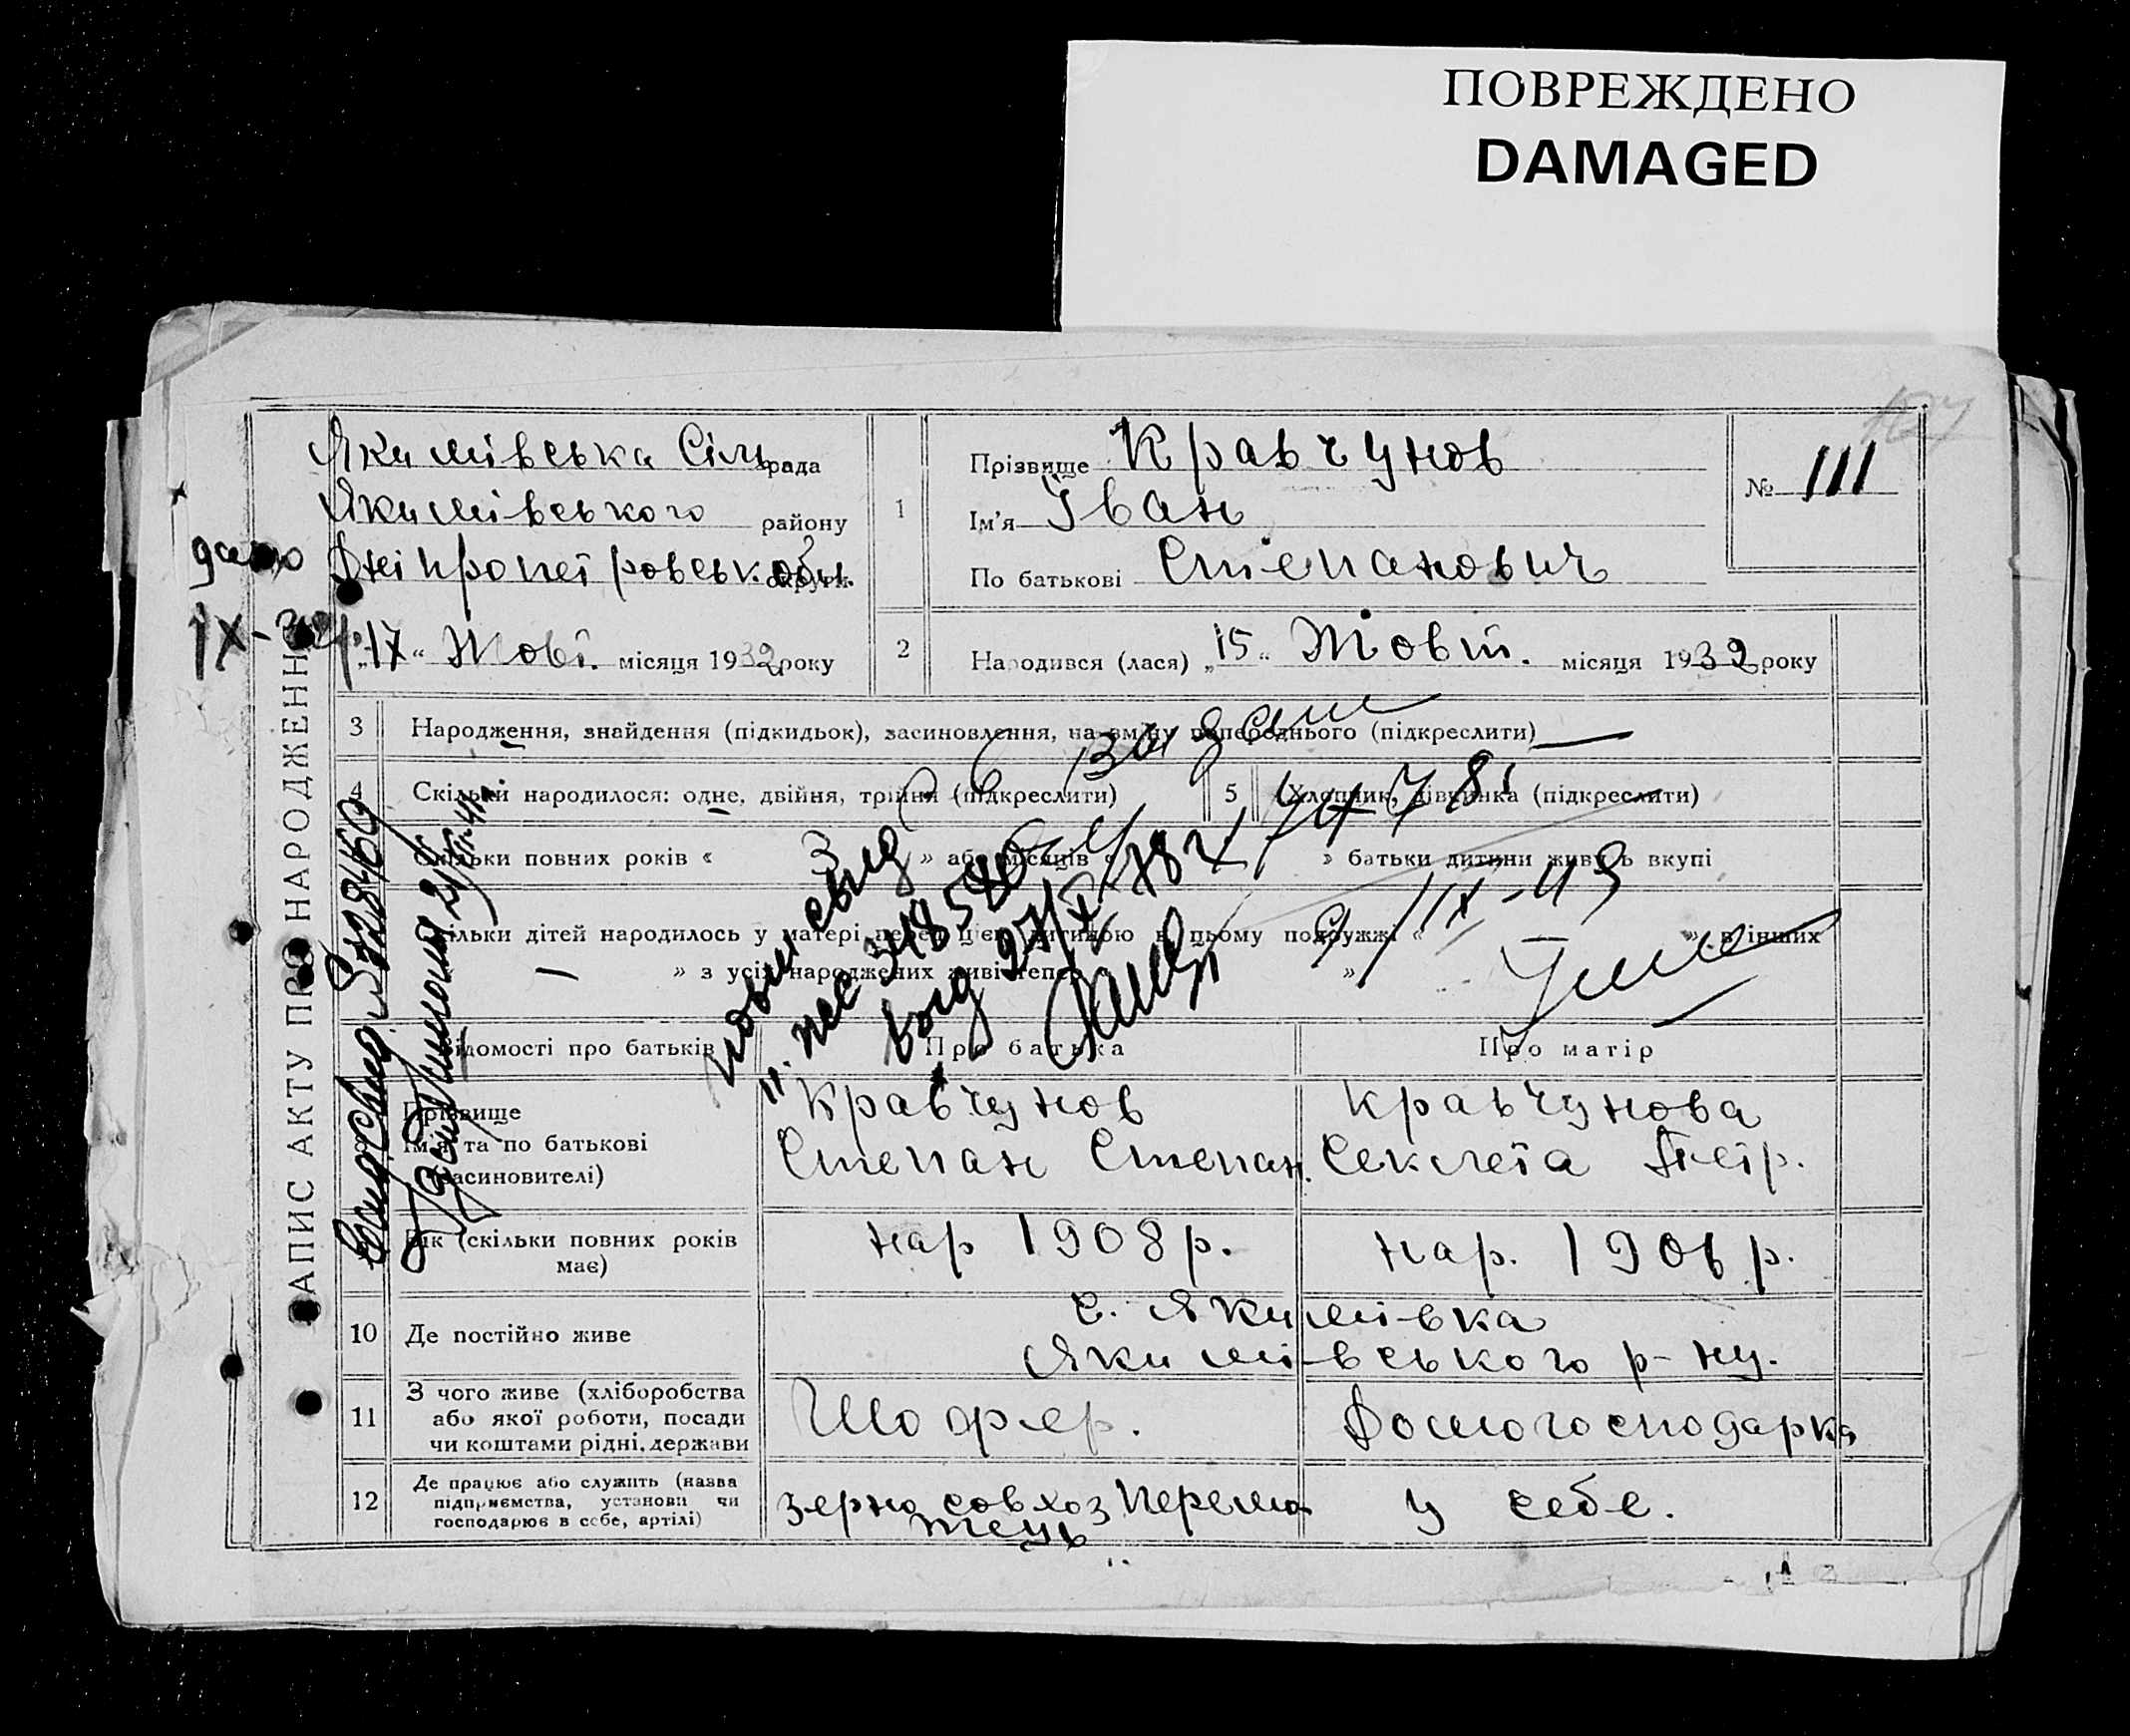 ПОВРЕЖДЕНО
DAMAGED
ЗАПИС АКТУ ПРО НАРОДЖЕННЯ
Якимівська Сіль рада
Якимівського району
Дніпропетровськ. обл. округи
„17“ Жовт. місяця 1932 року
1
Прізвище Кравчунов
Ім'я Іван
По батькові Степанович
№ 111
2
Народився (лася) „15“ Жовт. місяця 1932 року
3 Народження, знайдення (підкидьок), засиновлення, на зміну попереднього (підкреслити) —
4 Скільки народилося: одне, двійня, трійня (підкреслити)
5 Хлопчик, дівчинка (підкреслити)
Скільки повних років « 3 » або місяців « » батьки дитини живуть вкупі
Скільки дітей народилось у матері перед цією дитиною в цьому подружжі « — » в інших
— » з усіх народжених живі тепер »
Відомості про батьків
Про батька
Про матір
Прізвище
Ім'я та по батькові
(засиновителі)
Кравчунов
Степан Степан.
Кравчунова
Секлета Петр.
Вік (скільки повних років
має)
нар 1908 р.
нар. 1906 р.
10 Де постійно живе
с. Якимівка
Якимівського р-ну.
11 З чого живе (хліборобства
або якої роботи, посади
чи коштами рідні, держави
Шофер.
Домогосподарка
12 Де працює або служить (назва
підприємства, установи чи
господарює в себе, артілі)
зерно совхоз Перемо
жець
у себе.